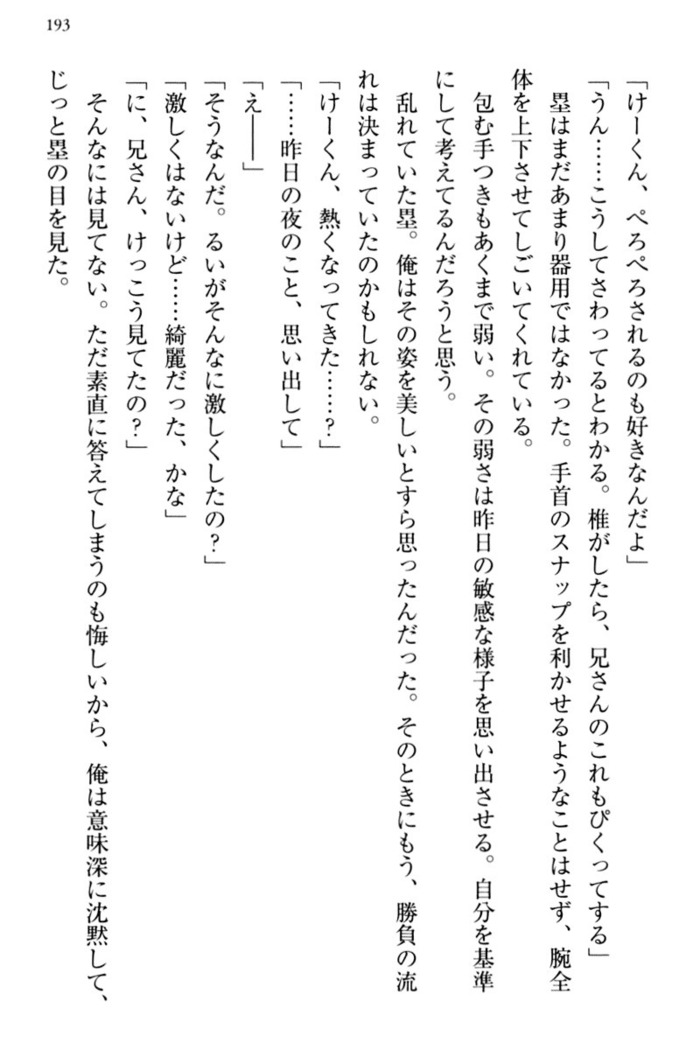 193
「けーくん、ぺろぺろされるのも好きなんだよ」
「うん……こうしてさわってるとわかる。椎がしたら、兄さんのこれもぴくってする」
　塁はまだあまり器用ではなかった。手首のスナップを利かせるようなことはせず、腕全
体を上下させてしごいてくれている。
　包む手つきもあくまで弱い。その弱さは昨日の敏感な様子を思い出させる。自分を基準
にして考えてるんだろうと思う。
　乱れていた塁。俺はその姿を美しいとすら思ったんだった。そのときにもう、勝負の流
れは決まっていたのかもしれない。
「けーくん、熱くなってきた……？」
「……昨日の夜のこと、思い出して」
「え――」
「そうなんだ。るいがそんなに激しくしたの？」
「激しくはないけど……綺麗だった、かな」
「に、兄さん、けっこう見てたの？」
　そんなには見てない。ただ素直に答えてしまうのも悔しいから、俺は意味深に沈黙して、
じっと塁の目を見た。